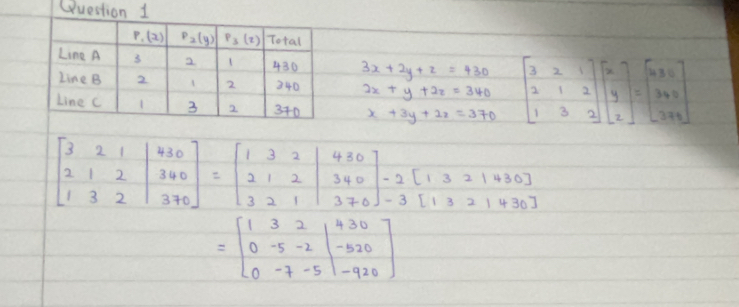 Question 1
P₁(x) P₂(y) P₃(z) Total
Line A 3 2 1 430
Line B 2 1 2 340
Line C 1 3 2 370
3x + 2y + z = 430
2x + y + 2z = 340
x + 3y + 2z = 370
[3 2 1] [x] [430]
[2 1 2] [y] = [340]
[1 3 2] [z] [370]
[3 2 1 | 430] [1 3 2 | 430]
[2 1 2 | 340] = [2 1 2 | 340] - 2 [1 3 2 | 430]
[1 3 2 | 370] [3 2 1 | 370] - 3 [1 3 2 | 430]
[1 3 2 | 430]
= [0 -5 -2 | -520]
[0 -7 -5 | -920]